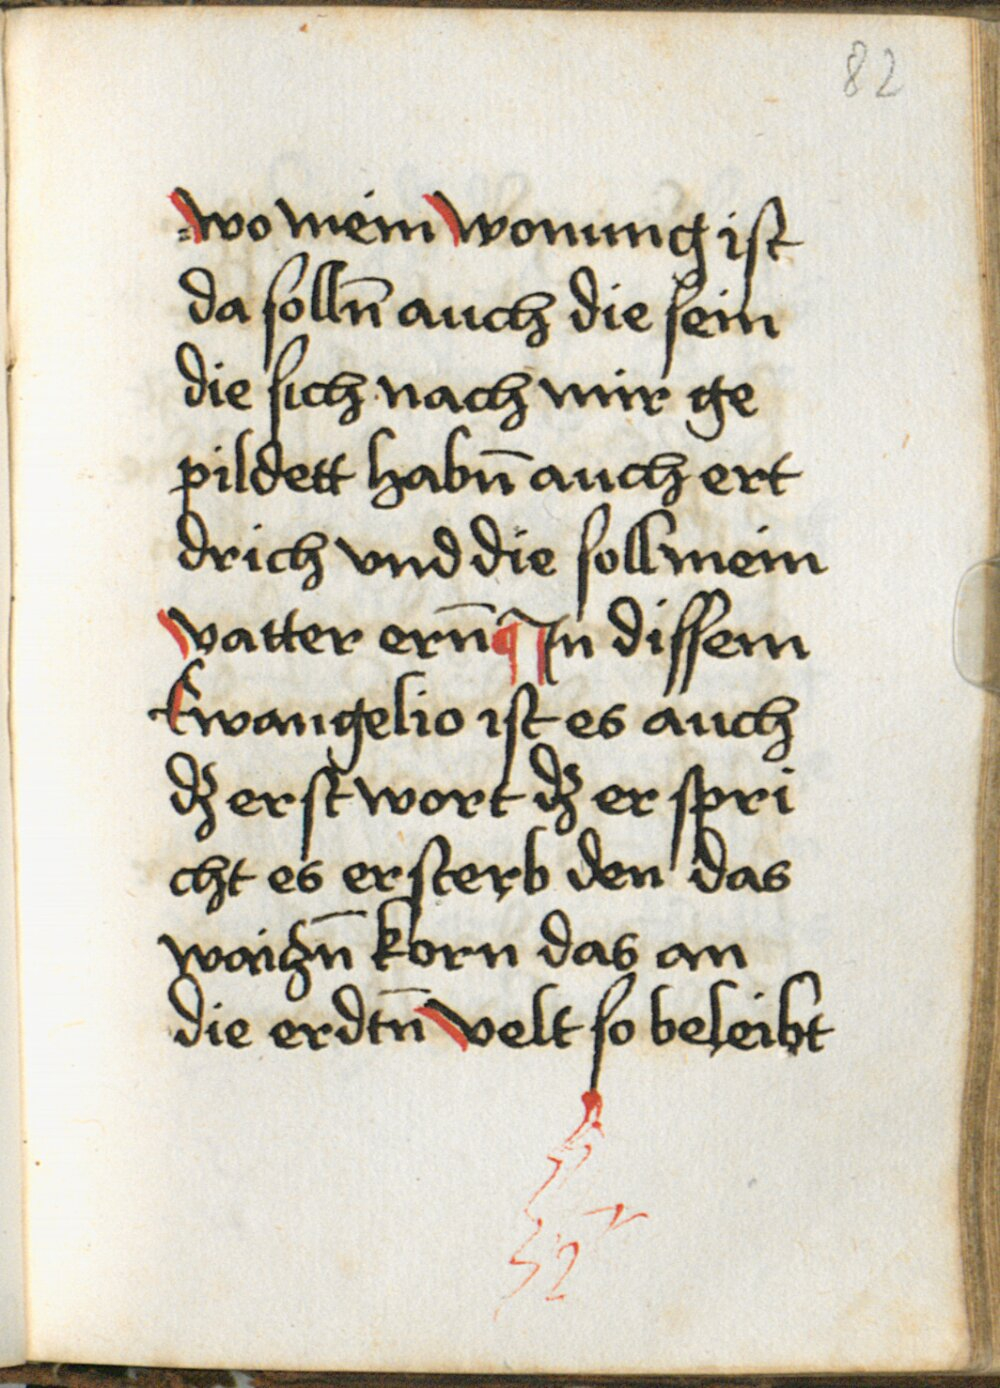 82
wo mein wonung ist
da solln̄ auch die sein
die sich nach mir ge
pildett habn̄ auch ert
drich vnd die soll mein
vatter ern̄ ¶ In dissem
Ewangelio ist es auch
dʒ erst wort dʒ er spri
cht es ersterb den das
waiczn̄ korn das an
die erdtn̄ velt so beleibt